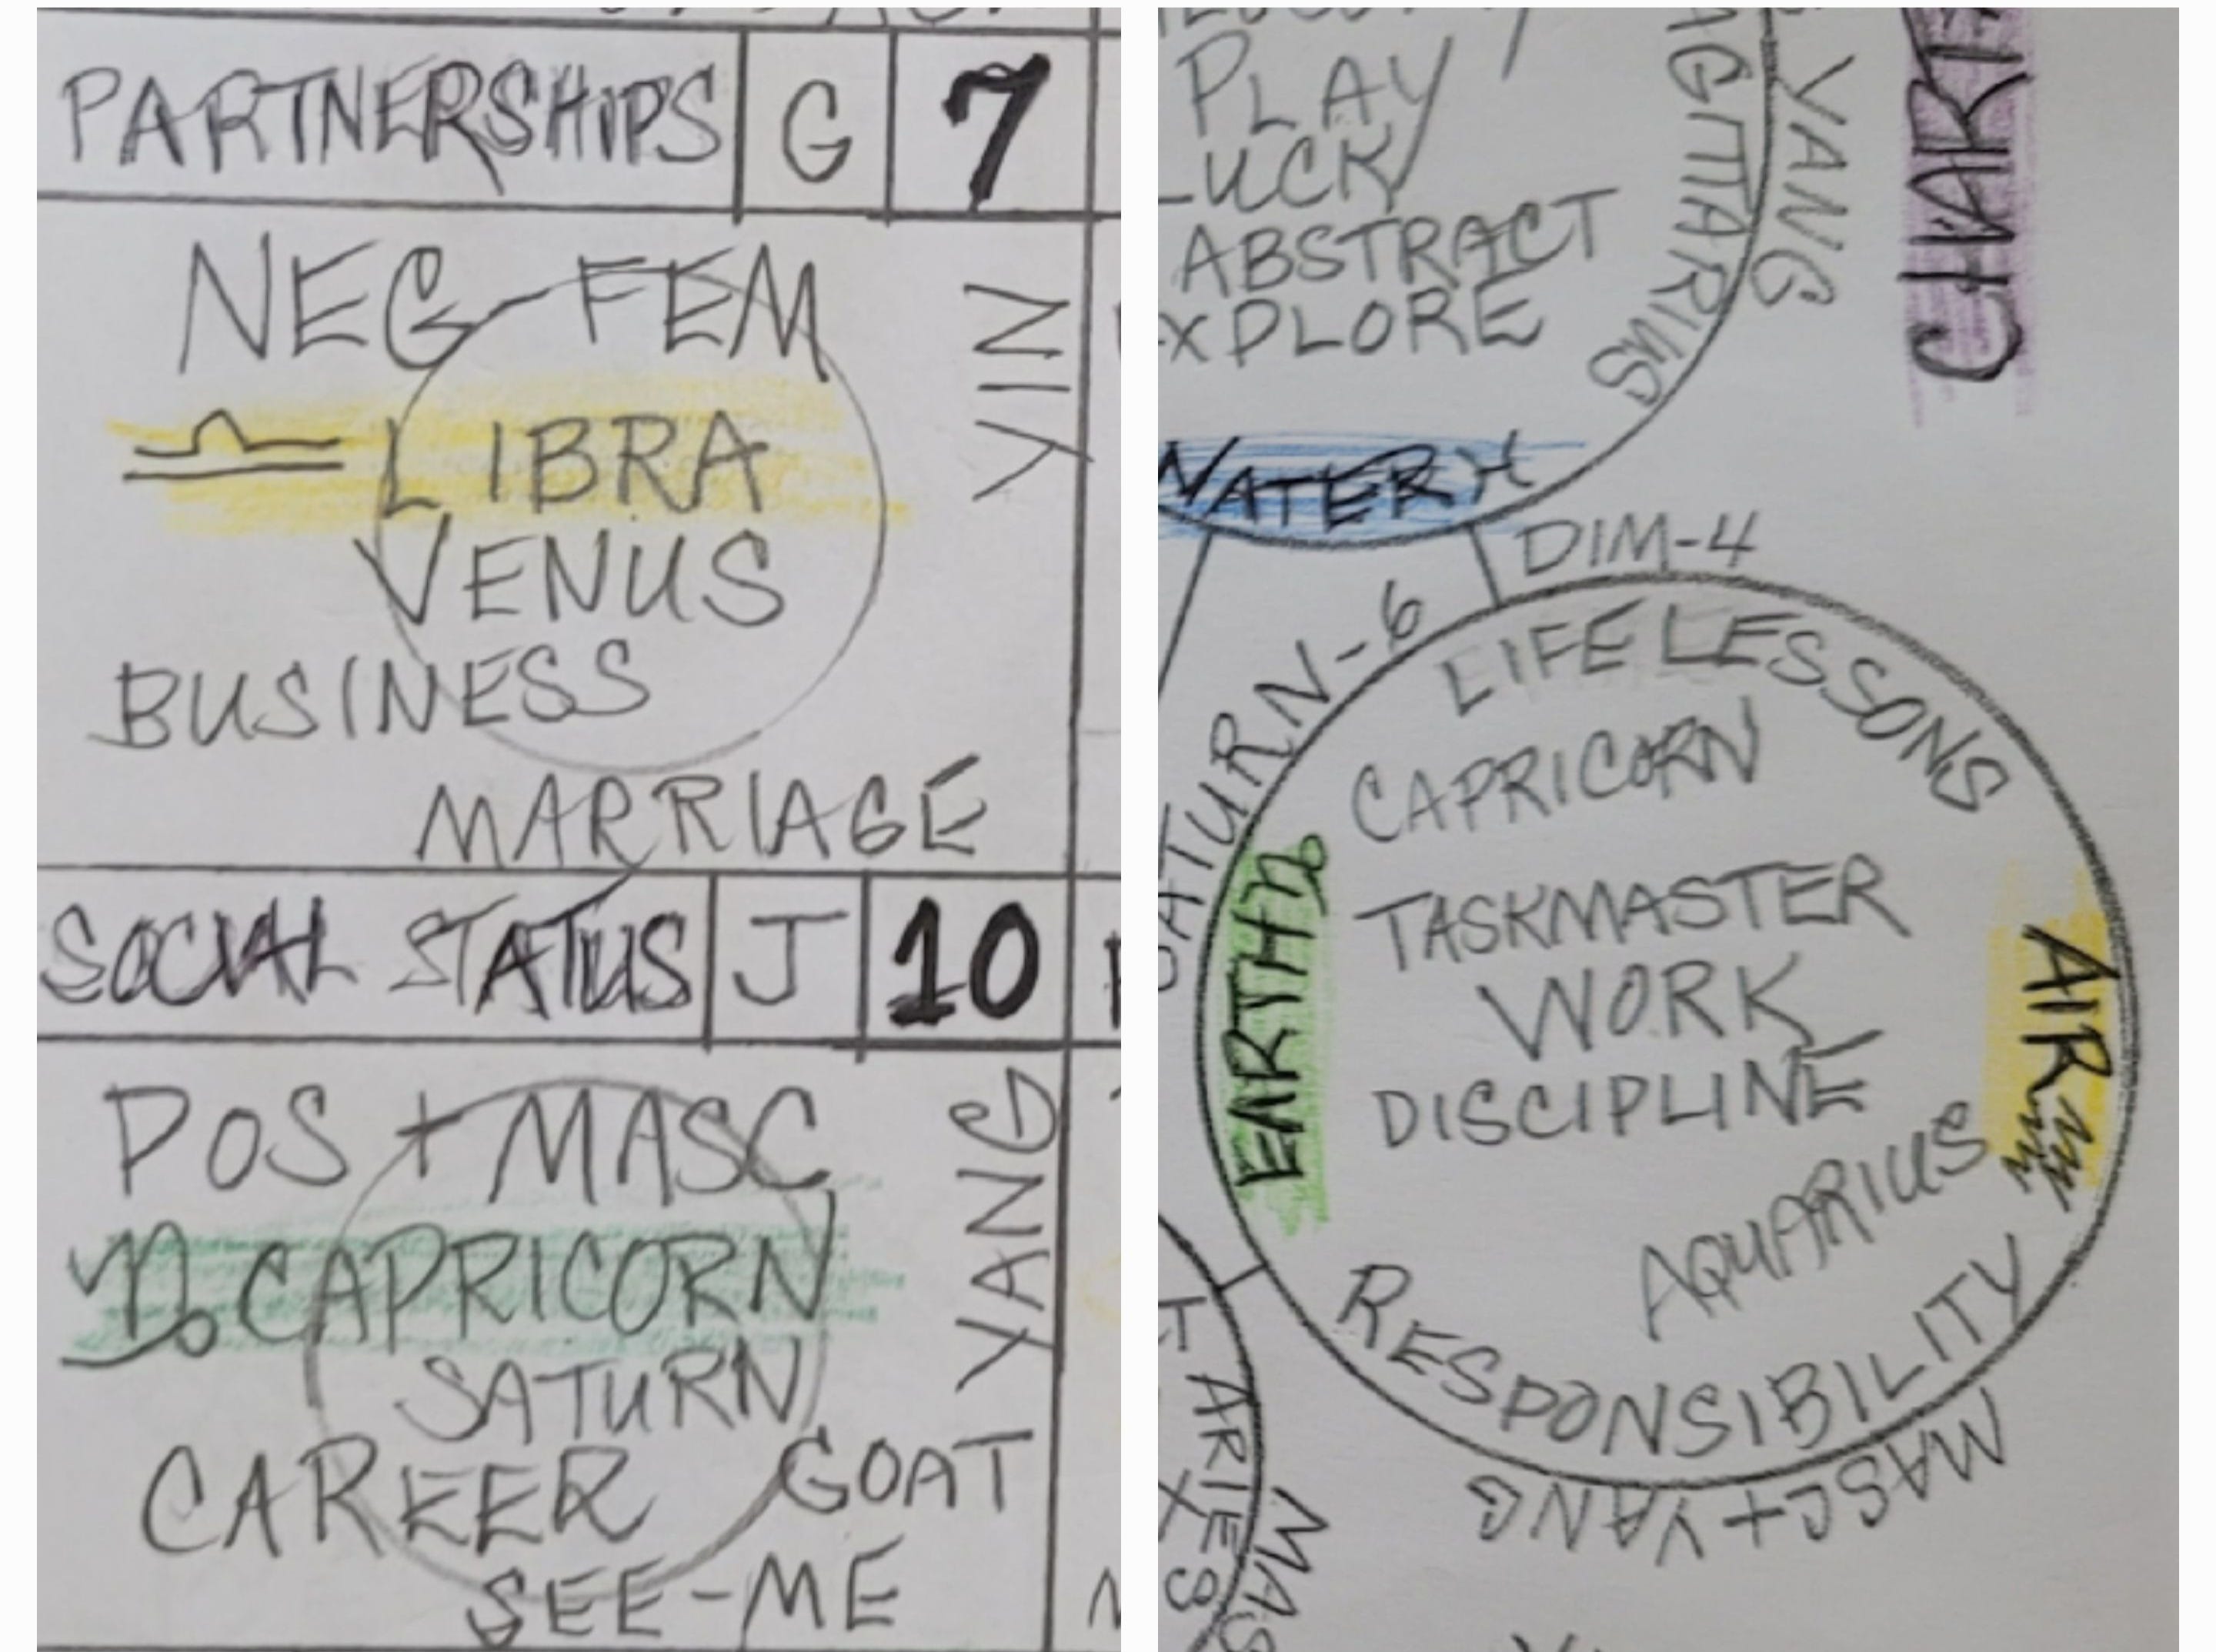 PARTNERSHIPS G 7
NEG - FEM
YIN
♎ LIBRA
VENUS
BUSINESS
MARRIAGE
SOCIAL STATUS J 10
POS + MASC
YANG
♑ CAPRICORN
SATURN
CAREER GOAT
SEE-ME
PLAY
LUCK
ABSTRACT
XPLORE
YANG
CHART
WATER ♓
DIM-4
SATURN-6
LIFE LESSONS
CAPRICORN
EARTH ♑
TASKMASTER
WORK
DISCIPLINE
AIR ♒
AQUARIUS
RESPONSIBILITY
MASC + YANG
ARIES
MAS